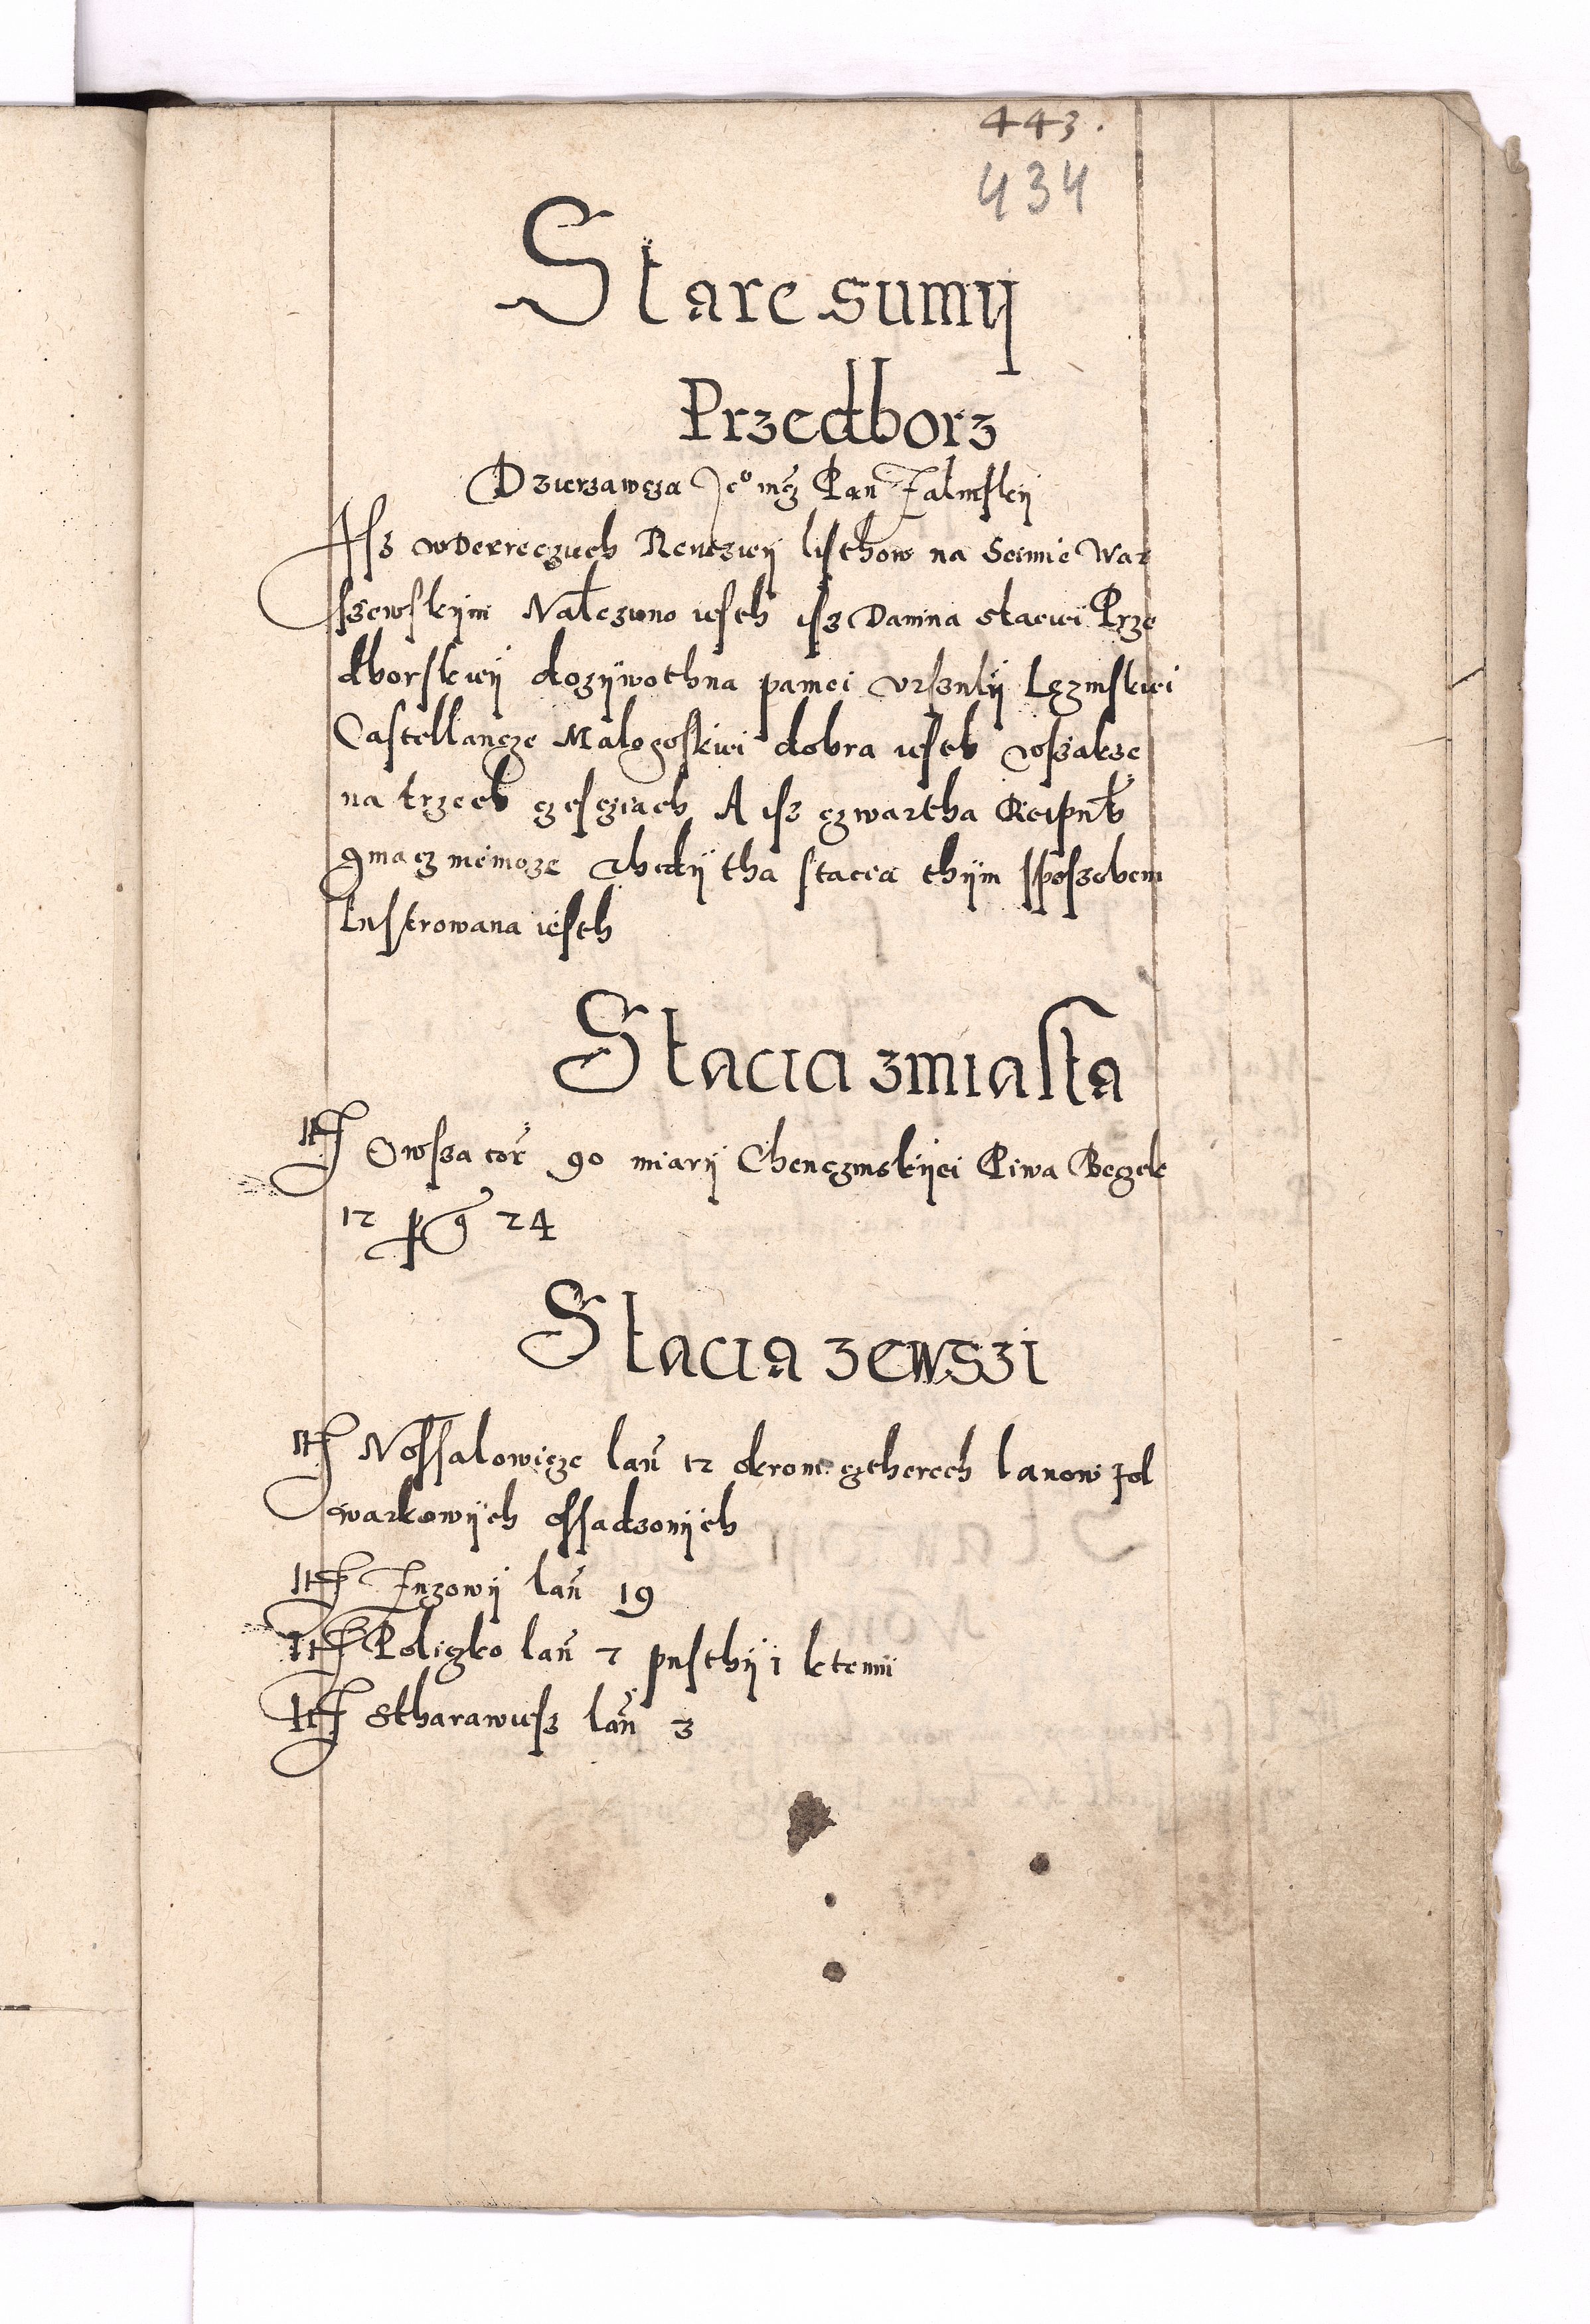 443.
434
Stare sumÿ
Przedborz
Dzierzawcza Jeº mcz Pan Falinskÿ
Isz wdekreczuch Rewizieÿ listhow na Seimie War
szewskÿm Nalezuono iesth isz Danina staciei Prze
dborskieÿ dozÿwothna paniei Urszulÿ Lęzinskiei
Castellancze Malogoskiei dobra iesth wszakze
na trzech czesciach A isz czwartha
gmacz niemoze Thedÿ tha stacia thÿm sposzobem
lustrowana iesth
Stacia z miasta
It Owsza cor 90 miarÿ Chenczinskÿei Piwa Beczek
12 p g 24
Stacia ze wszi
It Nossalowicze lan 12 okrom cztherech lanow fol
warkowÿch ossadzonÿch
It Jnzowÿ lan 19
It Policzko lan 7 pusthÿ 1 ktemu
It Stharawiesz lan 3